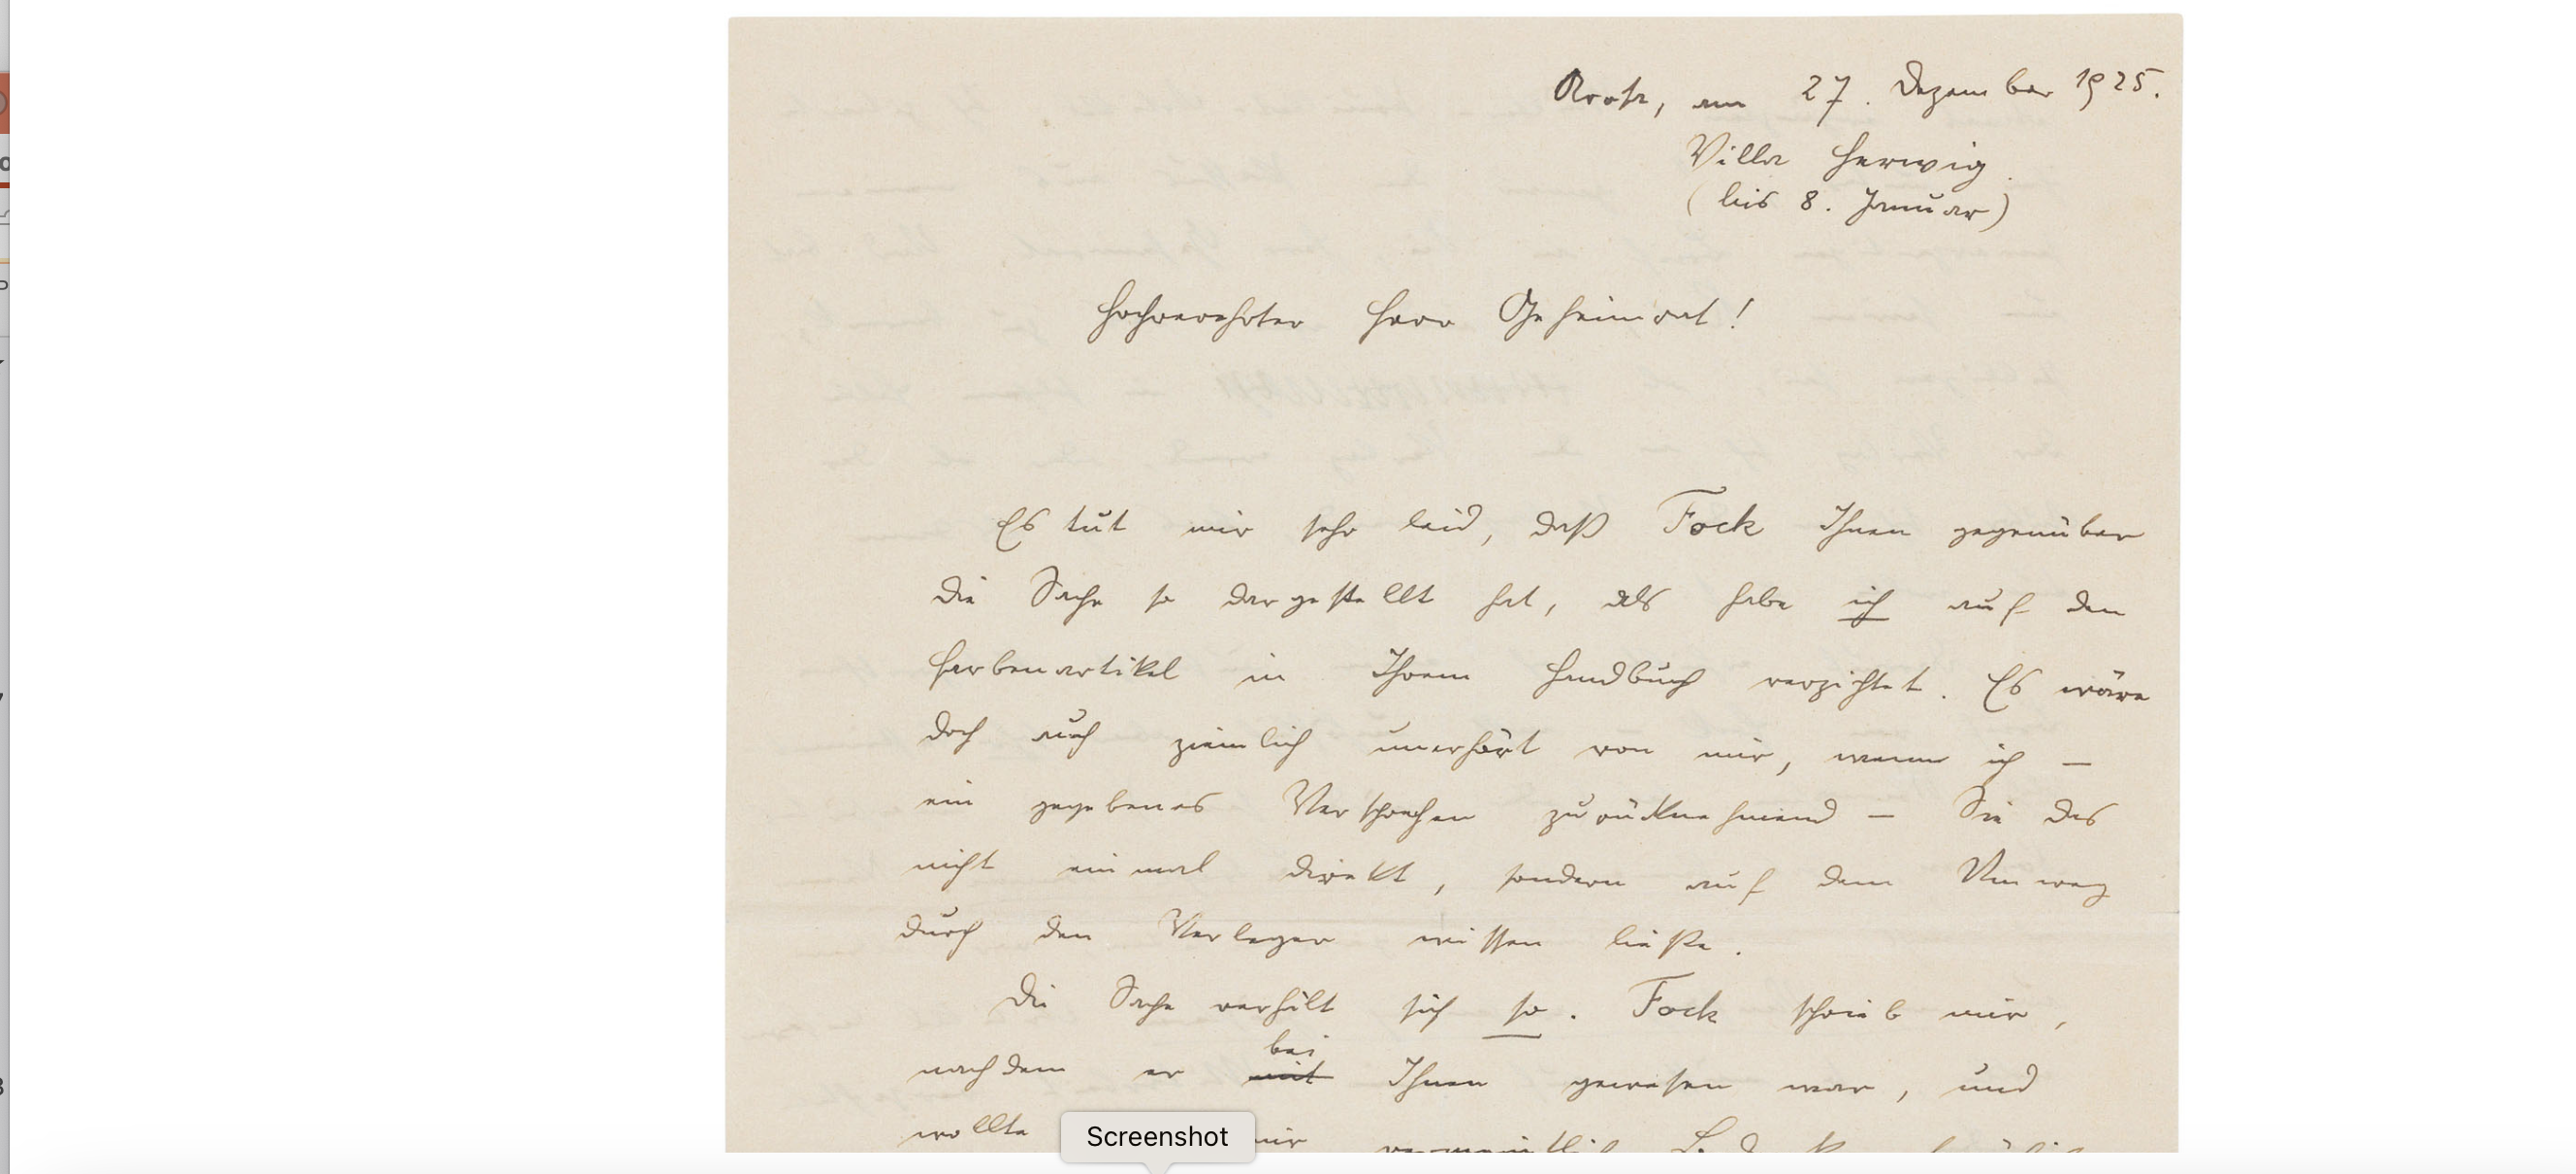 Arosa, am 27. Dezember 1925.
Villa Herwig.
(bis 8. Januar)
Hochverehrter Herr Geheimrat!
Es tut mir sehr leid, daß Fock Ihnen gegenüber
die Sache so dargestellt hat, als habe ich auf den
Farbenartikel in Ihrem Handbuch verzichtet. Es wäre
doch auch ziemlich unerhört von mir, wenn ich —
ein gegebenes Versprechen zurücknehmend — Sie das
nicht einmal direkt, sondern auf dem Umweg
durch den Verleger wissen ließe.
Die Sache verhält sich so. Fock schrieb mir,
bei
nachdem er mit Ihnen gewesen war, und
wollte mir
Screenshot